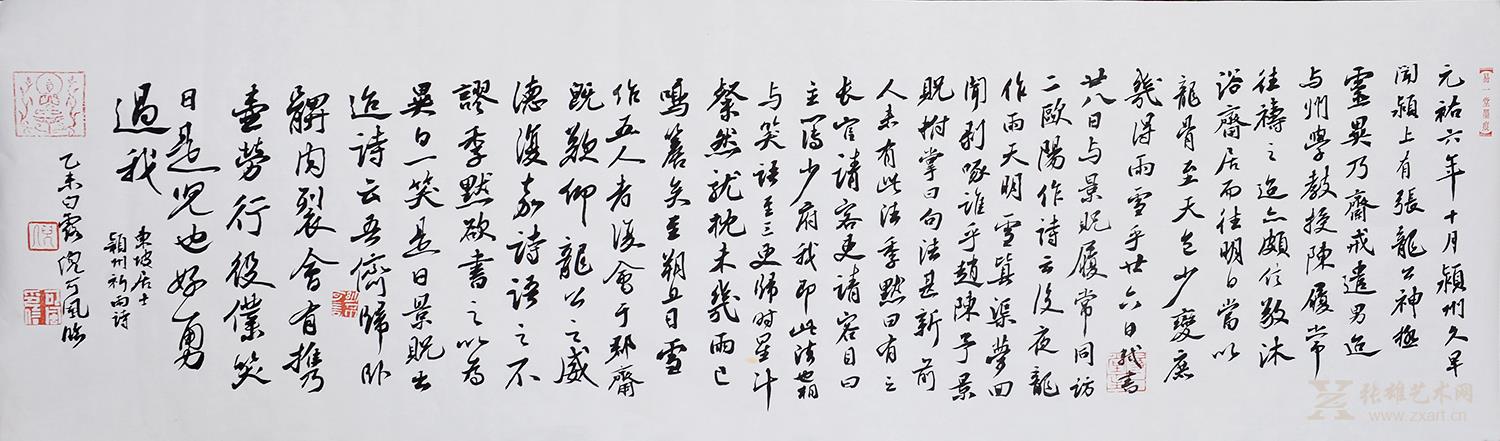 易一堂墨痕
元祐六年十月颍州久旱
闻颍上有張龍公神極
靈異乃齋戒遣男迨
与州學教授陳履常
往禱之迨亦頗信敬沐
浴齋居而往明日當以
龍骨至天色少變庶
幾得雨雪乎廿六日軾書
廿八日与景貺履常同访
二歐陽作詩云後夜龍
作雨天明雪填渠夢回
聞剥啄誰乎趙陳予景
貺拊掌曰句法甚新前
人未有此法季默曰有之
长官請客吏請客目曰
主簿少府我即此法也相
与笑語至三更归时星斗
粲然就枕未幾雨已
鳴簷矣至朔旦日雪
作五人者復會于郡齋
既歎仰龍公之威
德復嘉詩語之不
謬季默欲書之以為
異日一笑是日景貺出
迨詩云吾儕歸卧
髀肉裂會有携
壺勞行役僕笑
曰是兒也好勇
過我
東坡居士
颍州祈雨詩
乙未白露 倪丁風臨
张雄艺术网
www.zxart.cn